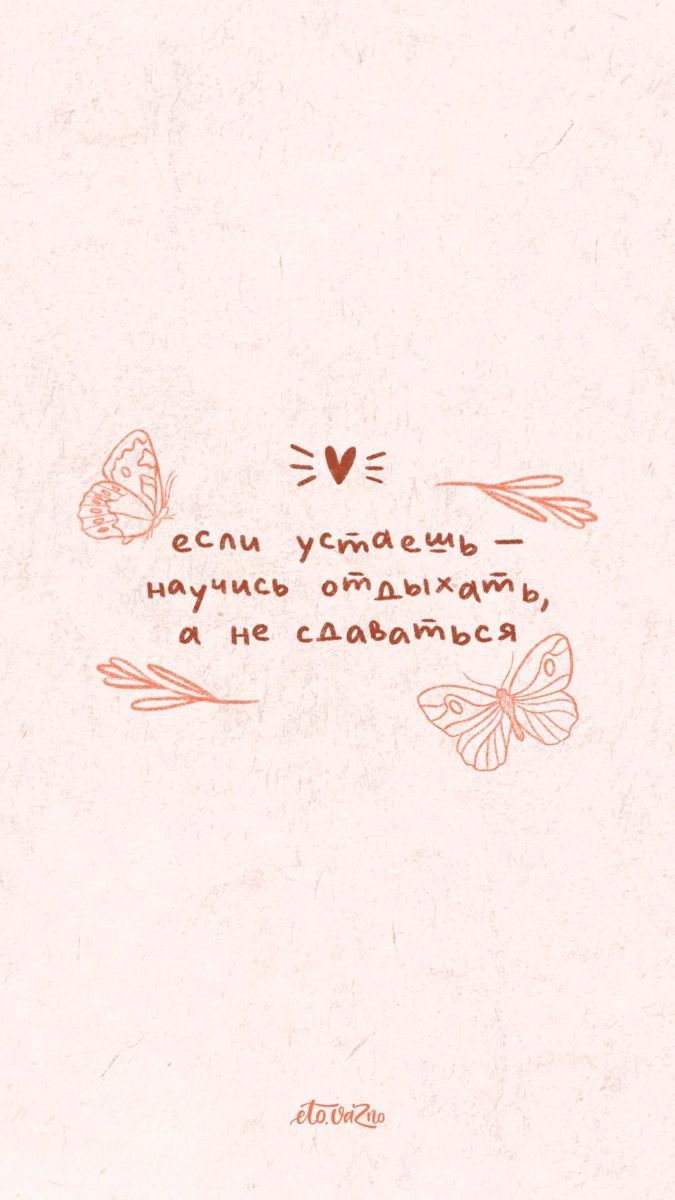 если устаешь —
научись отдыхать,
а не сдаваться
eto.vaZno